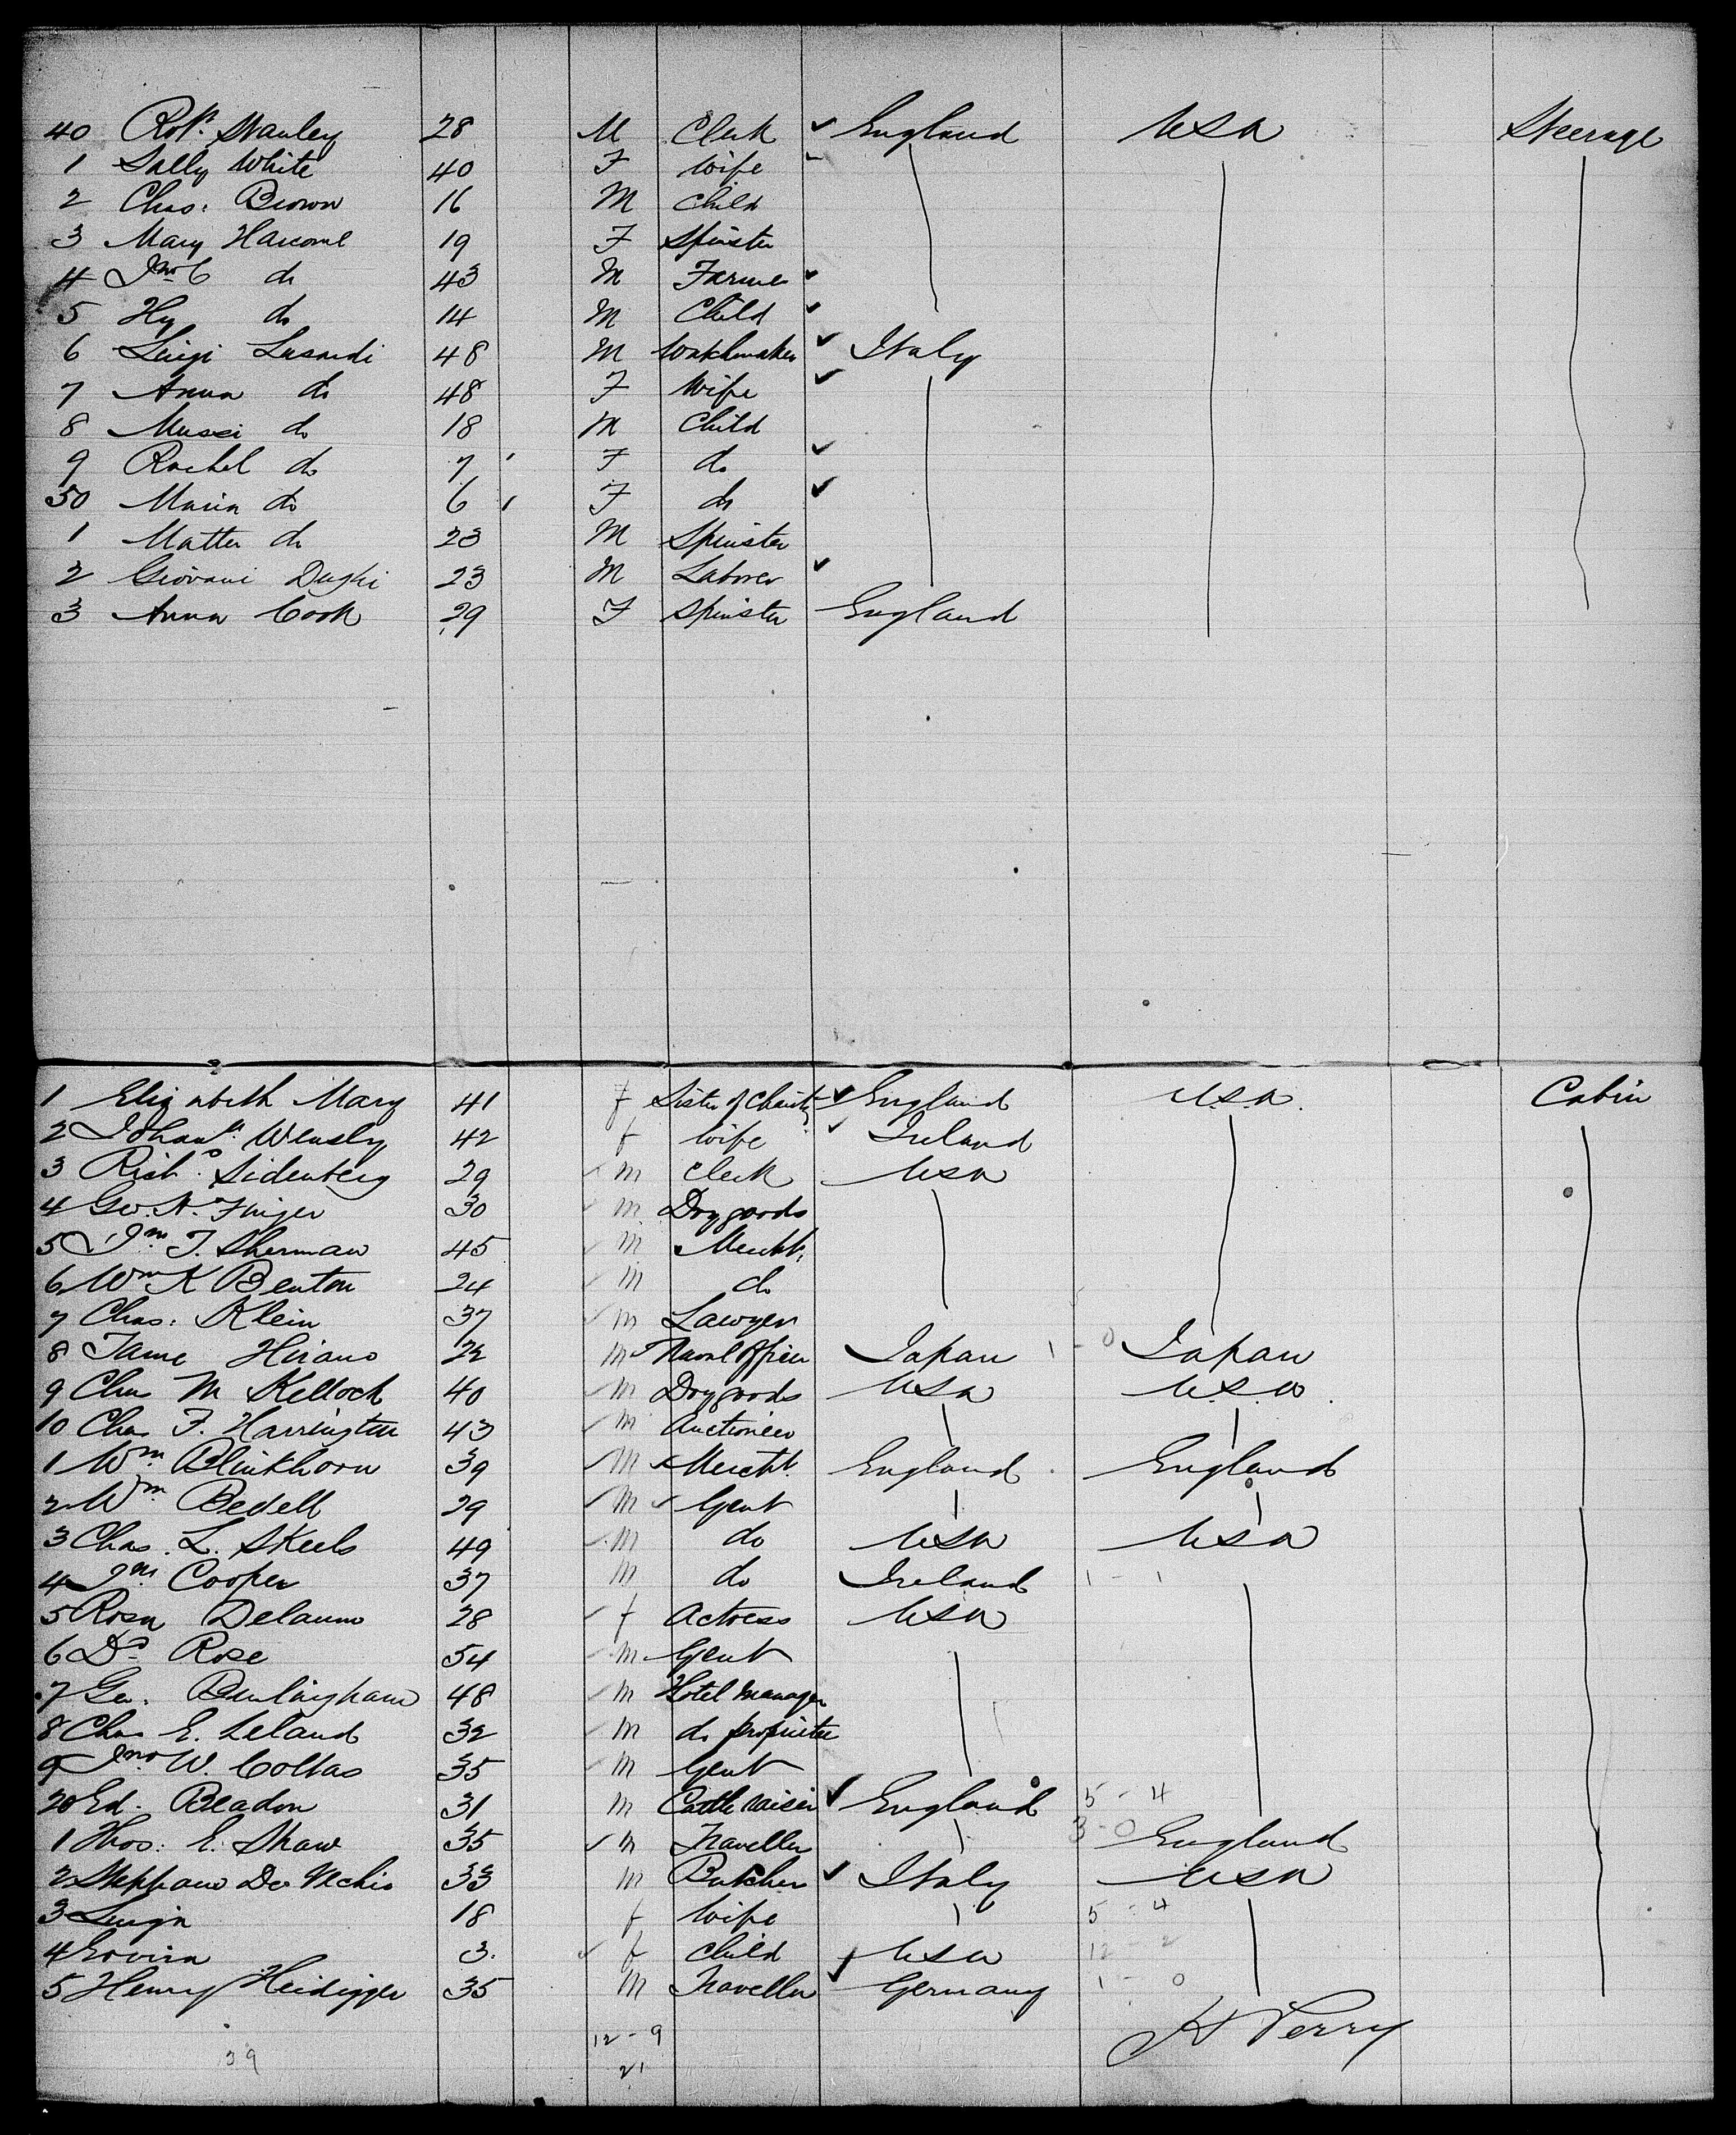 40 Robt. Stanley 28 M Clerk ✓ England USA Steerage
1 Sally White 40 F Wife
2 Chas. Brown 16 M Child
3 Mary Harcome 19 F Spinster
4 Jno C do 43 M Farmer ✓
5 Hy do 14 M Child ✓
6 Luigi Lusardi 48 M Watchmaker ✓ Italy
7 Anna do 48 F Wife ✓
8 do 18 M Child
9 Rachel do 7 F do ✓
50 Maria do 6 F do ✓
1 Matteo do 23 M Spinster
2 Giovani Dughi 23 M Laborer ✓
3 Anna Cook 29 F Spinster England
1 Elizabeth Mary 41 f Sister of Charity ✓ England U.S.A. Cabin
2 Johana Wensly 42 f Wife ✓ Ireland
3 Richd. Sidenberg 29 m Clerk USA
4 Geo. N. Finger 30 m Drygoods
5 Jno. T. Sherman 45 m Mercht.
6 Wm K Benton 24 m do
7 Chas. Klein 37 m Lawyer
8 Tame Hirano 22 m Naval Officer Japan 1 - 0 Japan
9 Chas M Kellock 40 m Drygoods USA U.S.A.
10 Chas F. Harrington 43 m Auctioneer
1 Wm. Blinkhorn 39 M Mercht. England England
2 Wm. Bedell 29 M ✓ Gent
3 Chas. L. Skeels 49 M do USA USA
4 Jno. Cooper 37 M do Ireland 1 - 1
5 Rosa 28 f Actress USA
6 Rose 54 m Gent
7 Geo. 48 m Hotel Manager
8 Chas E. Leland 32 m do proprietor
9 Jno W. 35 m Gent
20 Ed. Beadon 31 m Cattle raiser ✓ England 5 - 4
1 Thos. E. Shaw 35 ✓ m Traveller 3 - 0 England
2 Steppano De Vechio 33 m Butcher ✓ Italy USA
3 Luigia 18 f Wife 5 - 4
4 3 f Child USA 12 - 2
5 Henry Heidigger 35 M Traveller ✓ Germany 1 - 0
12 - 9 H Perry
39 21